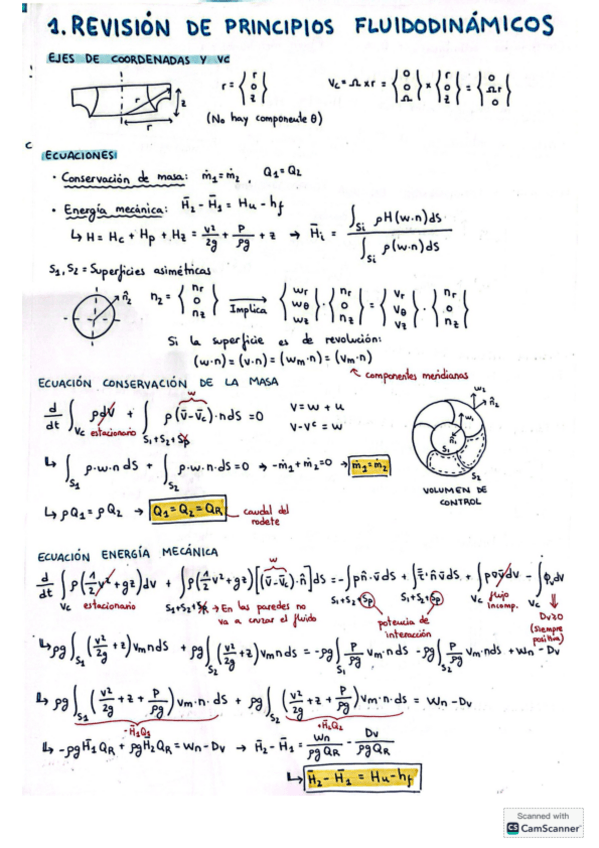 1. REVISIÓN DE PRINCIPIOS FLUIDODINÁMICOS
EJES DE COORDENADAS Y VC
r = {r 0 z}   Vc = Ω x r = {0 0 Ω} x {r 0 z} = {0 Ωr 0}
(No hay componente θ)
ECUACIONES:
· Conservación de masa: ṁ1 = ṁ2 , Q1 = Q2
· Energía mecánica: H̄2 - H̄1 = Hu - hf
↳ H = Hc + Hp + Hz = v²/2g + P/ρg + z → H̄i = ∫Si ρH(w·n)ds / ∫Si ρ(w·n)ds
S1, S2 = Superficies asimétricas
n̄2   n2 = {nr 0 nz} Implica {wr wθ wz} · {nr 0 nz} = {vr vθ vz} · {nr 0 nz}
Si la superficie es de revolución:
(w·n) = (v·n) = (wm·n) = (vm·n)
componentes meridianas
ECUACIÓN CONSERVACIÓN DE LA MASA
d/dt ∫Vc ρdV + ∫S1+S2+Sp ρ(v̄ - v̄c)·n ds = 0   V = w + u
estacionario   w   V - Vc = w
↳ ∫S1 ρ·w·n ds + ∫S2 ρ·w·n·ds = 0 → -ṁ1 + ṁ2 = 0 → ṁ1 = ṁ2
↳ ρQ1 = ρQ2 → Q1 = Q2 = QR caudal del rodete
VOLUMEN DE CONTROL
ECUACIÓN ENERGÍA MECÁNICA
w
d/dt ∫Vc ρ(½v² + gz)dv + ∫S1+S2+Sp ρ(½v² + gz)[(v̄ - v̄c)·n̄]ds = -∫S1+S2+Sp pn̄·v̄ds + ∫S1+S2+Sp τ̄·n̄v̄ds + ∫Vc p∇v̄dv - ∫Vc ϕv dv
estacionario   → En las paredes no va a cruzar el fluido   potencia de interacción   flujo incomp.   Dv≥0 (siempre positiva)
↳ ρg∫S1 (v²/2g + z) vm n ds + ρg∫S2 (v²/2g + z) vm n ds = -ρg∫S1 P/ρg vm·n ds - ρg∫S2 P/ρg vm·n ds + Wn - Dv
↳ ρg∫S1 (v²/2g + z + P/ρg) vm·n·ds + ρg∫S2 (v²/2g + z + P/ρg) vm·n·ds = Wn - Dv
-H̄1Q1   +H̄2Q2
↳ -ρgH̄1QR + ρgH̄2QR = Wn - Dv → H̄2 - H̄1 = Wn/ρgQR - Dv/ρgQR
↳ H̄2 - H̄1 = Hu - hf
Scanned with
CS CamScanner